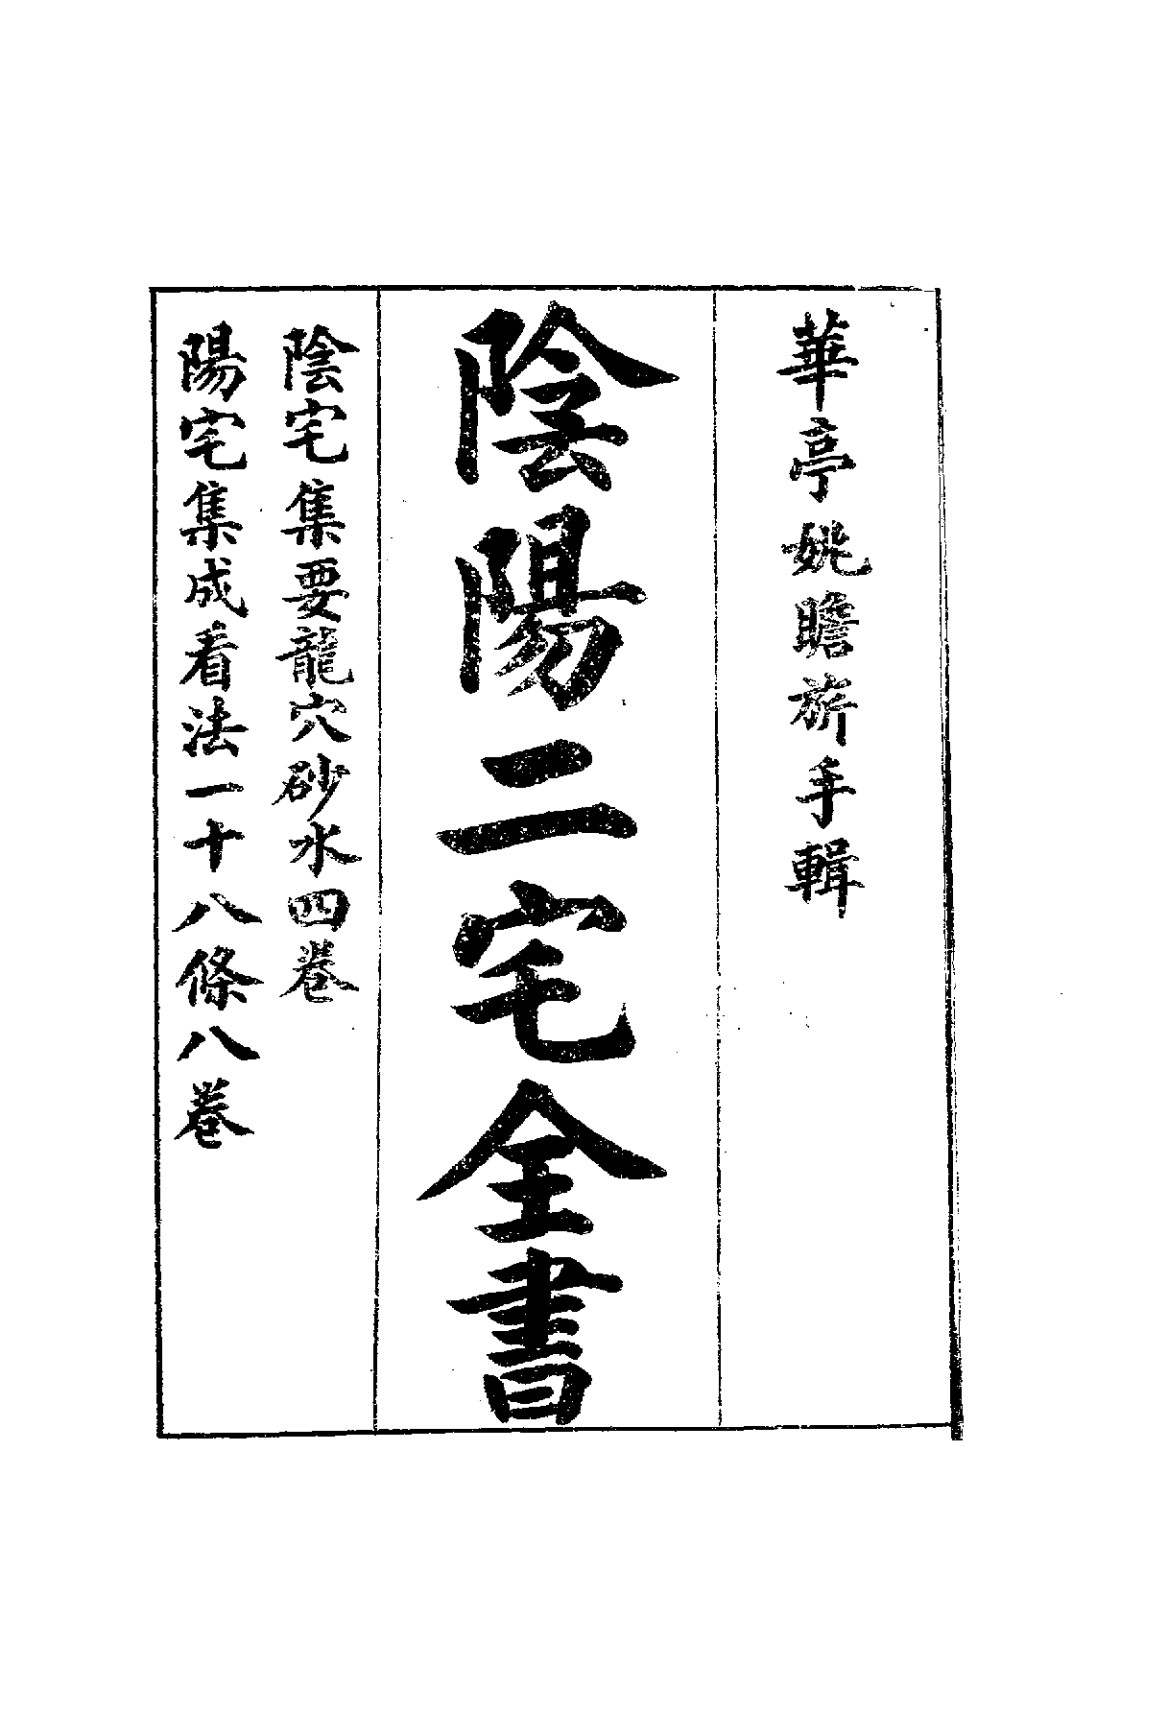 華亭姚瞻旂手輯
陰陽二宅全書
陰宅集要龍穴砂水四卷
陽宅集成看法一十八條八卷